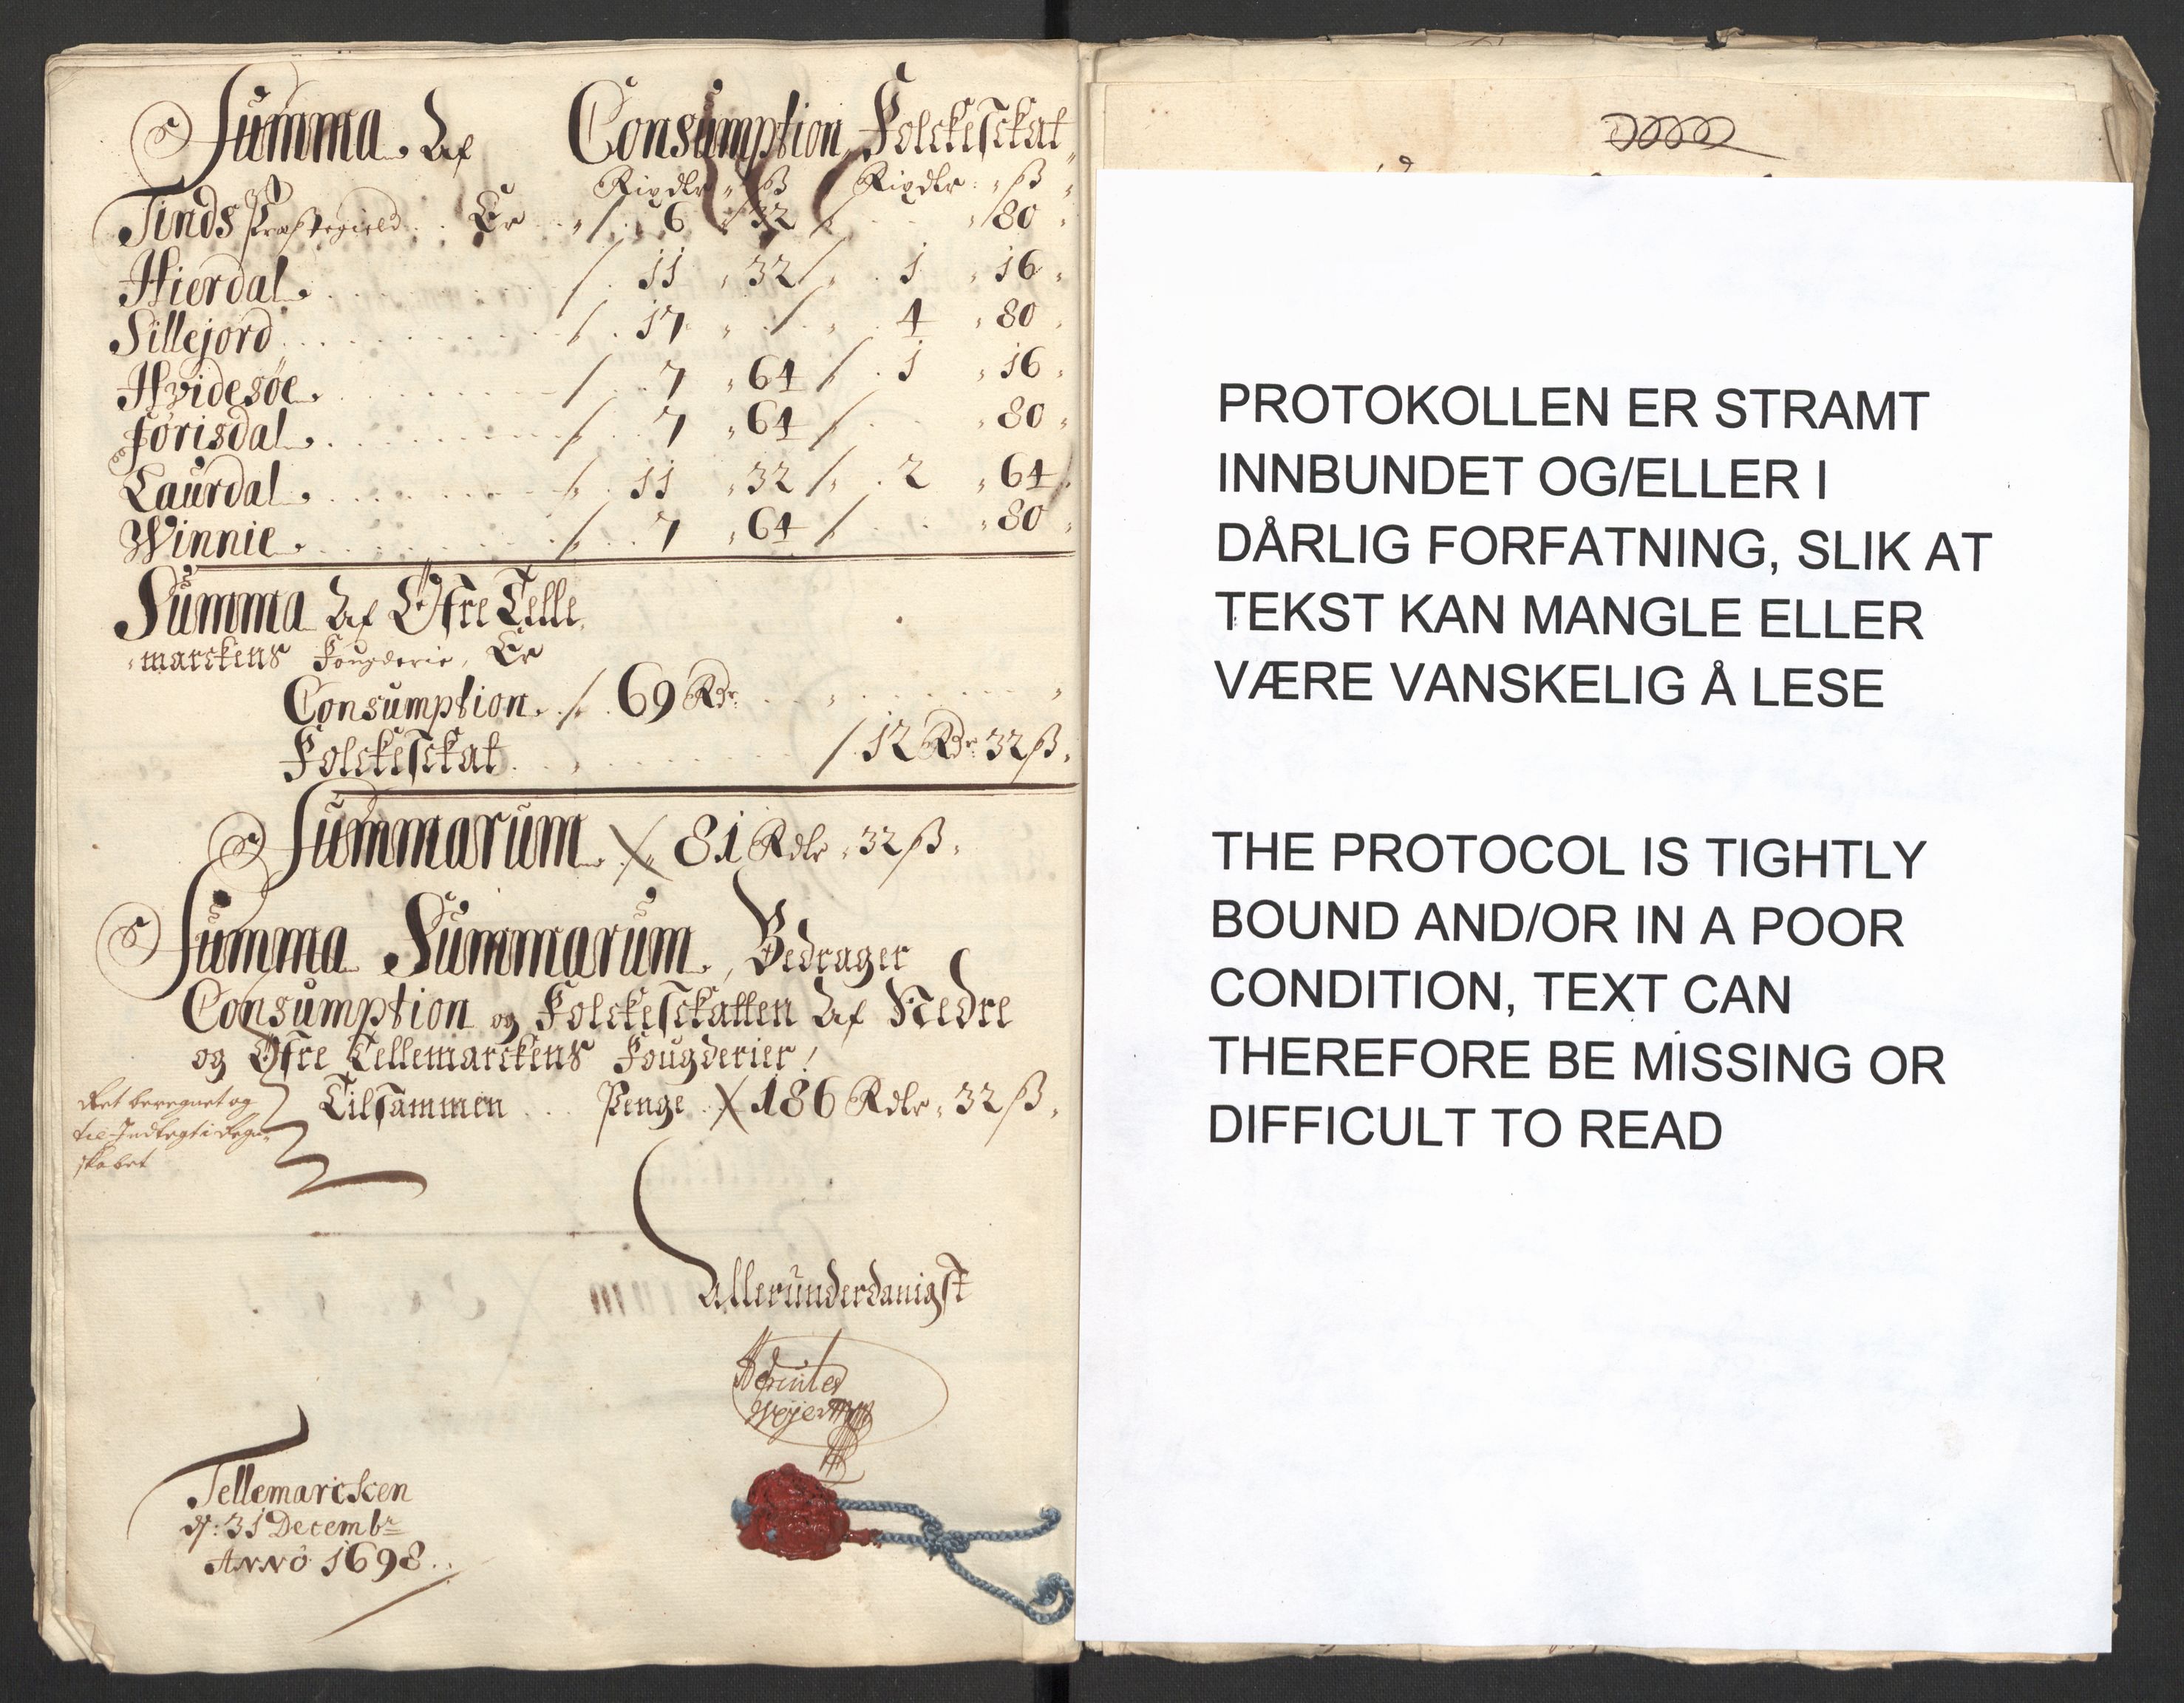 Summa Af Consumption, Folckeskat,
Rixdlr „ ß Rixdlr „ ß
Tinds Præstegield . . Er . . 6 „ 32 . . „ 80 „
Hierdal . . 11 „ 32 „ 1 „ 16 „
Sillejord . . 17 „ „ 4 „ 80 „
Hvidesøe . . 7 „ 64 . 1 „ 16 „
Jorisdal . . 7 „ 64 . . „ 80 „
Laurdal . . 11 „ 32 „ 2 „ 64 „
Winnie . . 7 „ 64 . . „ 80 „
Summa Af Øfre Telle
marckens Fougderie, Er
Consumption . 69 Rdr
Folckeskat . . 12 Rdr 32 ß.
Summarum . 81 Rdlr „ 32 ß.
Summa Summarum, Bedrager
Consumption og Folckeskatten Af Nedre
og Øfre Tellemarckens Fougderier!
Tilsammen . . Penge . 186 Rdlr „ 32 ß.
Ret beregnet og
til Indtegt i Regn-
skabet
Allerunderdanigst
Tellemarcken
d: 31 Decembr
Anno 1698
PROTOKOLLEN ER STRAMT
INNBUNDET OG/ELLER I
DÅRLIG FORFATNING, SLIK AT
TEKST KAN MANGLE ELLER
VÆRE VANSKELIG Å LESE
THE PROTOCOL IS TIGHTLY
BOUND AND/OR IN A POOR
CONDITION, TEXT CAN
THEREFORE BE MISSING OR
DIFFICULT TO READ